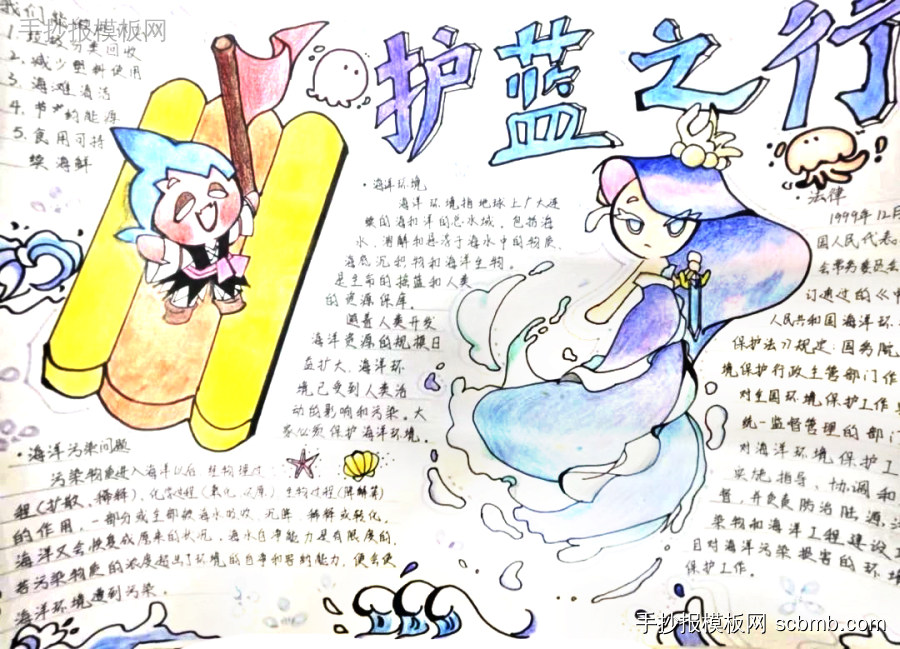 护蓝之行
手抄报模板网
我们
1. 垃圾分类回收
2. 减少塑料使用
3. 海滩清洁
4. 节约能源
5. 食用可持
续海鲜
·海洋环境
海洋环境指地球上广大连
续的海和洋的总水域。包括海
水、溶解和悬浮于海水中的物质、
海底沉积物和海洋生物。
是生命的摇篮和人类
的资源保库。
随着人类开发
海洋资源的规模日
益扩大，海洋环
境已受到人类活
动的影响和污染。大
家必须保护海洋环境。
·法律
1999年12月
国人民代表
会常务委员会
订通过的《中
人民共和国海洋环
保护法》规定：国务院
境保护行政主管部门作
对全国环境保护工作
统一监督管理的部门
对海洋环境保护工
实施指导、协调和
督，并负责防治陆源
染物和海洋工程建设
目对海洋污染损害的环境
保护工作。
·海洋污染问题
污染物质进入海洋以后，经物理过
程（扩散、稀释）、化学过程（氧化、还原）生物过程（降解等）
的作用，一部分或全部被海水吸收、沉降、稀释或转化。
海洋又会恢复成原来的状况。海水自净能力是有限度的，
若污染物质的浓度超出了环境的自净和容纳能力，便会使
海洋环境遭到污染。
手抄报模板网 scbmb.com